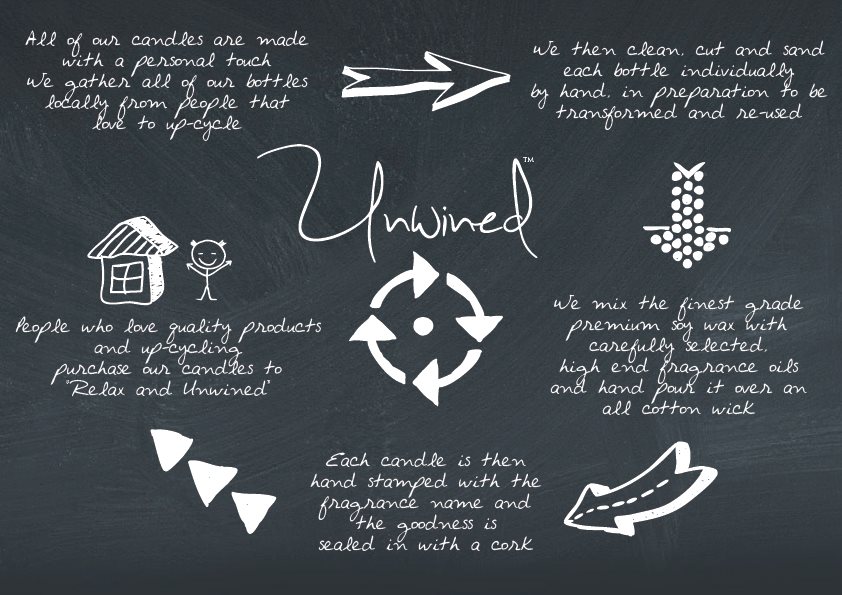 All of our candles are made
with a personal touch
We gather all of our bottles
locally from people that
love to up-cycle
We then clean, cut and sand
each bottle individually
by hand, in preparation to be
transformed and re-used
Unwined™
We mix the finest grade
premium soy wax with
carefully selected,
high end fragrance oils
and hand pour it over an
all cotton wick
Each candle is then
hand stamped with the
fragrance name and
the goodness is
sealed in with a cork
People who love quality products
and up-cycling
purchase our candles to
"Relax and Unwined"